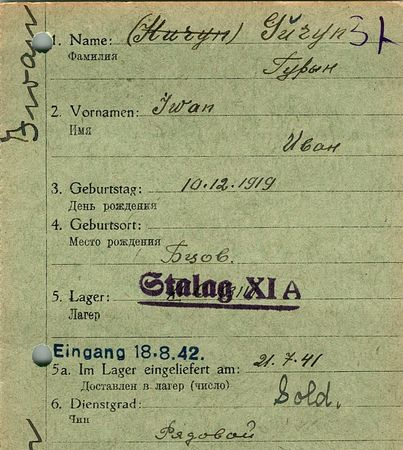 1. Name: Гурын
Фамилия
2. Vornamen: Iwan
Имя
Иван
3. Geburtstag: 10.12.1919
День рождения
4. Geburtsort:
Место рождения
Stalag XI A
5. Lager:
Лагер
Eingang 18.8.42.
5a. Im Lager eingeliefert am: 21.7.41
Доставлен в лагер (число)
6. Dienstgrad: Sold.
Чин
Рядовой
Iwan